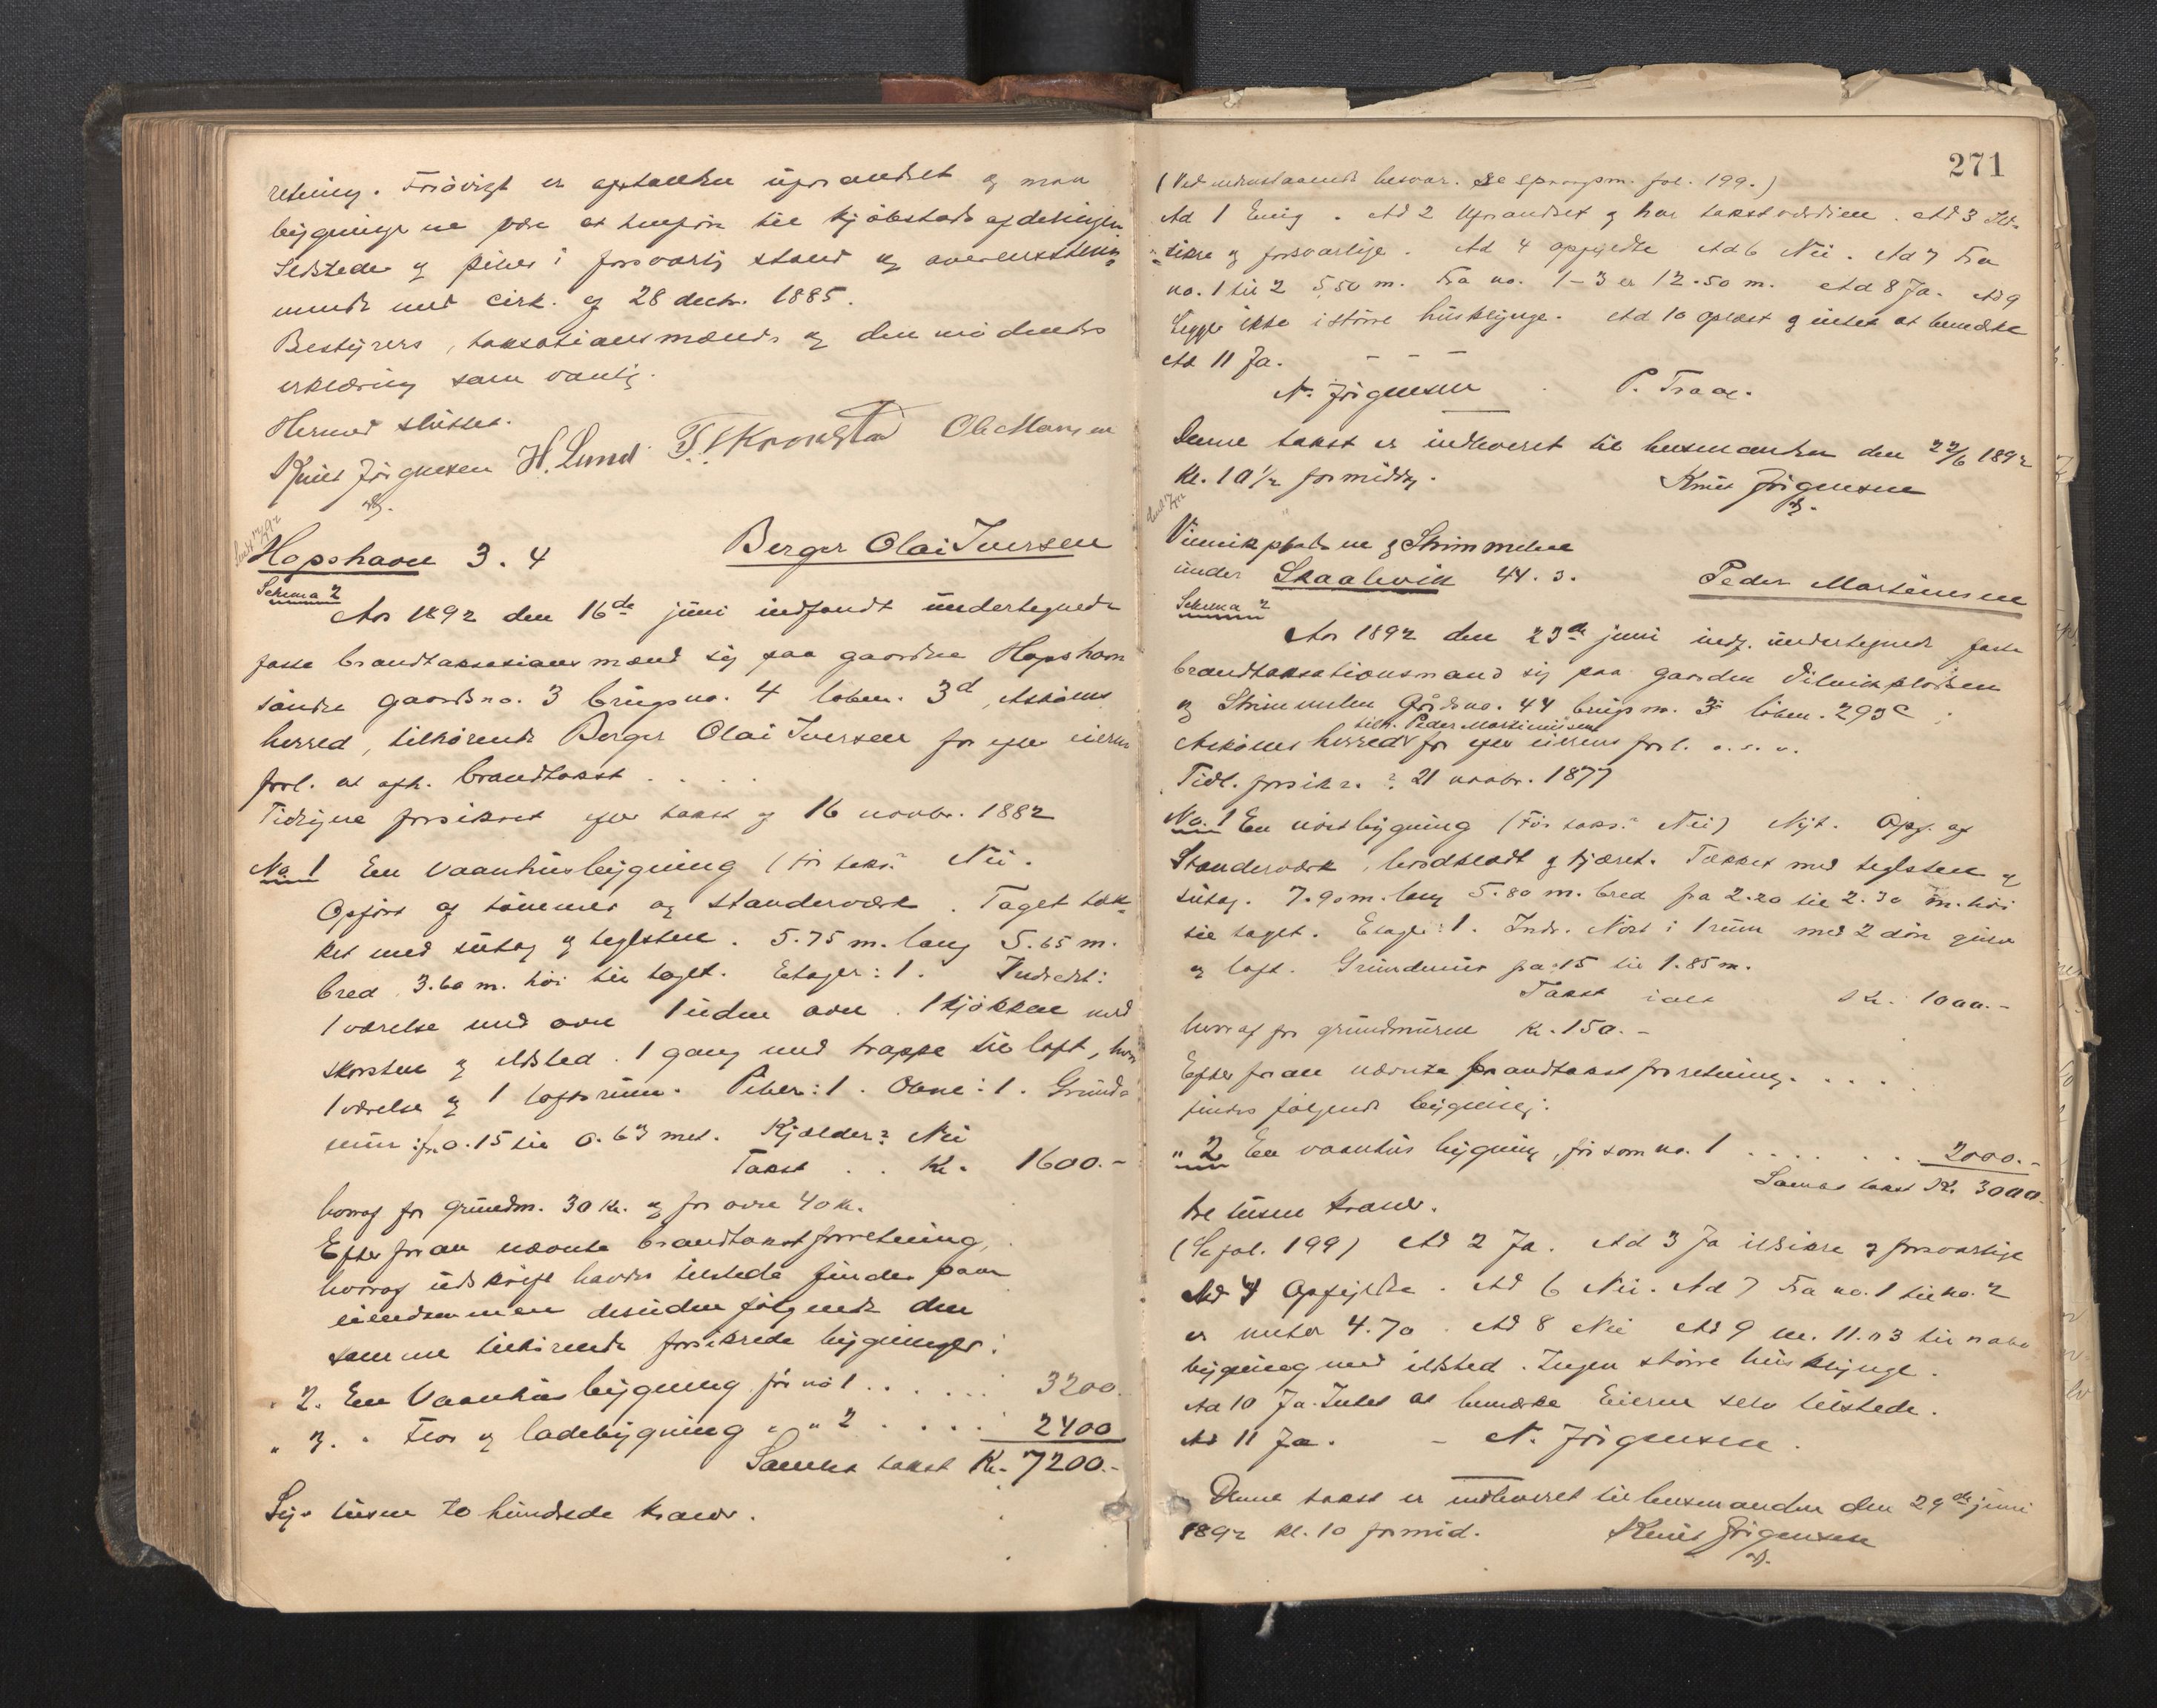 retning. Forövrigt er apstanden uforandret og maa
bygningerne være at henföre til kjöbstads afdelingen
Ildstede og piber i forsvarlig stand og overensstem-
mende med cirk. af 28 decbr. 1885.
Bestyrers, taksationsmænds og den mödendes
erklæring som vanlig.
Hermed sluttet.
Knut Jörgensen H. Lund Ole Monsen
Hopshavn 3. 4 Berger Olai Iversen
Schema 2
Aar 1892 den 16de juni indfandt undertegnede
faste brandtaksasionsmænd sig paa gaarden Hopshavn
söndre gaardsno. 3 brugsno. 4 löben. 3d, Asköens
herred, tilhörende Berger Olai Iversen for efter eierens
forl. at afh. brandtakst . . . .
Tidligere forsikret efter takst af 16 novbr. 1882
No. 1 En vaanhusbygning (för taks? Nei.
Opfört af tömmer og standerværk. Taget tæk-
ket med sutag og teglstene. 5.75 m. lang 5.65 m.
bred 3.60 m. höi til taget. Etager: 1. Indredet:
1 værelse med ovn 1 uden ovn. 1 kjökken med
skorsten og ildsted. 1 gang med trappe til loft, hvor
1 værelse og 1 loftsrum. Piber: 1. Ovne: 1. Grund-
mur: fr. 0.15 til 0.63 met. Kjælder? Nei
Takst . . Kr. 1600.-
hvoraf for grundm. 30 kr. og for ovne 40 kr.
Efter foran nævnte brandtakstforretning,
hvoraf udskrift havdes tilstede findes paa
eiendommen desuden fölgende den
samme tilhörende forsikrede bygninger:
" 2. En Vaanhusbygning för no 1 . . . . . . 3200.
" 3. " Flor og ladebygning " " 2 . . . . 2400
Samlet takst Kr. 7200.-
Syv tusen to hundrede kroner.
271
(Ved nedenstaaende besvar. se spørgsm. fol. 199.)
Ad 1 Enig. Ad 2 Uforandret og har takstværdien. Ad 3 Ild-
sikre og forsvarlige. Ad 4 opfyldte Ad 6 Nei. Ad 7 Fra
no. 1 til 2 5,50 m. Fra no. 1-3 er 12.50 m. Ad 8 Ja. Ad 9
Ligger ikke i större husklynge. Ad 10 oplæst og intet at bemærke
Ad 11 Ja. - - -
N. Jörgensen P. Traae.
Denne takst er indleveret til lensmanden den 22/6 1892
kl. 10 1/2 formiddag. Knut Jörgensen
og Skrimmelen
under Skaalevik 44. 3. Peder Martinusen
Schema 2
Aar 1892 den 23de juni indf. undertegnede faste
brandtaksationsmænd sig paa gaarden
og Skrimmelen Gårdsno. 44 brugsno. 3 löben. 293c
Asköens herred tilh. Peder Martinusen for efter eierens forl. o. s. v.
Tidl. forsikr. ? 21 novbr. 1877
No. 1 En nöstbygning (För taks? Nei) Nyt. Opf. af
Standerværk, bordklædt og tjæret. Tækket med teglsten og
sutag. 7.90 m. lang 5.80 m. bred fra 2.20 til 2.30 m. höi
til taget. Etager: 1. Indr. Nöst i 1 rum med 2 dör
og loft. Grundmur fra: 15 til 1.85 m.
Takst ialt Kr. 1000.-
hvoraf for grundmuren Kr. 150.-
Efter foran nævnte brandtakstforretning. . . . .
findes fölgende bygning:
" 2 En vaanhus bygning, för som no. 1 . . . . . . . 2000.-
Samlet takst Kr. 3000.
tre tusen kroner.
(Se fol. 199) Ad 2 Ja. Ad 3 Ja ildsikre og forsvarlige
Ad 4 Opfyldte. Ad 6 Nei. Ad 7 Fra no. 1 til no. 2
er meter 4.70. Ad 8 Nei Ad 9 m. 11.03 til nabo
bygning med ildsted. Ingen större husklynge.
Ad 10 Ja. Intet at bemærke Eieren selv tilstede.
Ad 11 Ja. - N. Jörgensen.
Denne takst er indleveret til lensmanden den 29de juni
1892 kl. 10 formid. Knut Jörgensen